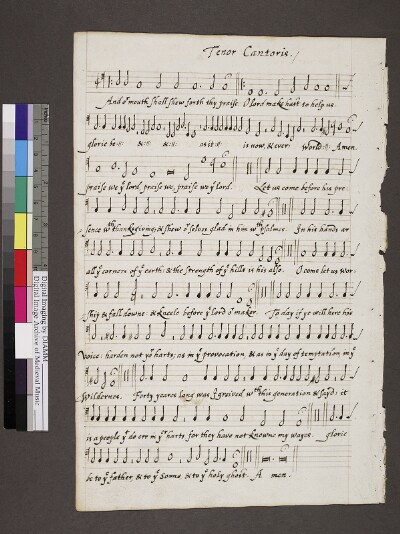 Tenor Cantoris./
And oʳ mouth shall shew forth thy praise O lord make hast to help us.
glorie be :||: &:||: &:||: as it :||: is now, & ever world :||: Amen.
praise we yᵉ lord praise we, praise we yᵉ lord. Let us come before his pre-
sence wᵗʰ thanksgiving, & shew oʳ selves glad in him wᵗʰ psalmes. In his hands ar
all yᵉ corners of yᵉ earth: & the strength of yᵉ hills is his also. O come let us wor-
ship & fall downe: & kneele before yᵉ lord oʳ maker. To day if ye will here his
Voice: harden not yoʳ harts, as in yᵉ provocation, & as in yᵉ day of temptation, in yᵉ
Wildernes. Forty yeares long was I greived wᵗʰ this generation & sayd: it
is a people yᵗ do err in yʳ harts, for they have not knowne my wayes. glorie
be to yᵉ father, & to yᵉ sonne, & to yᵉ holy ghost. A men.
Digital Imaging by DIAMM
Digital Image Archive of Medieval Music